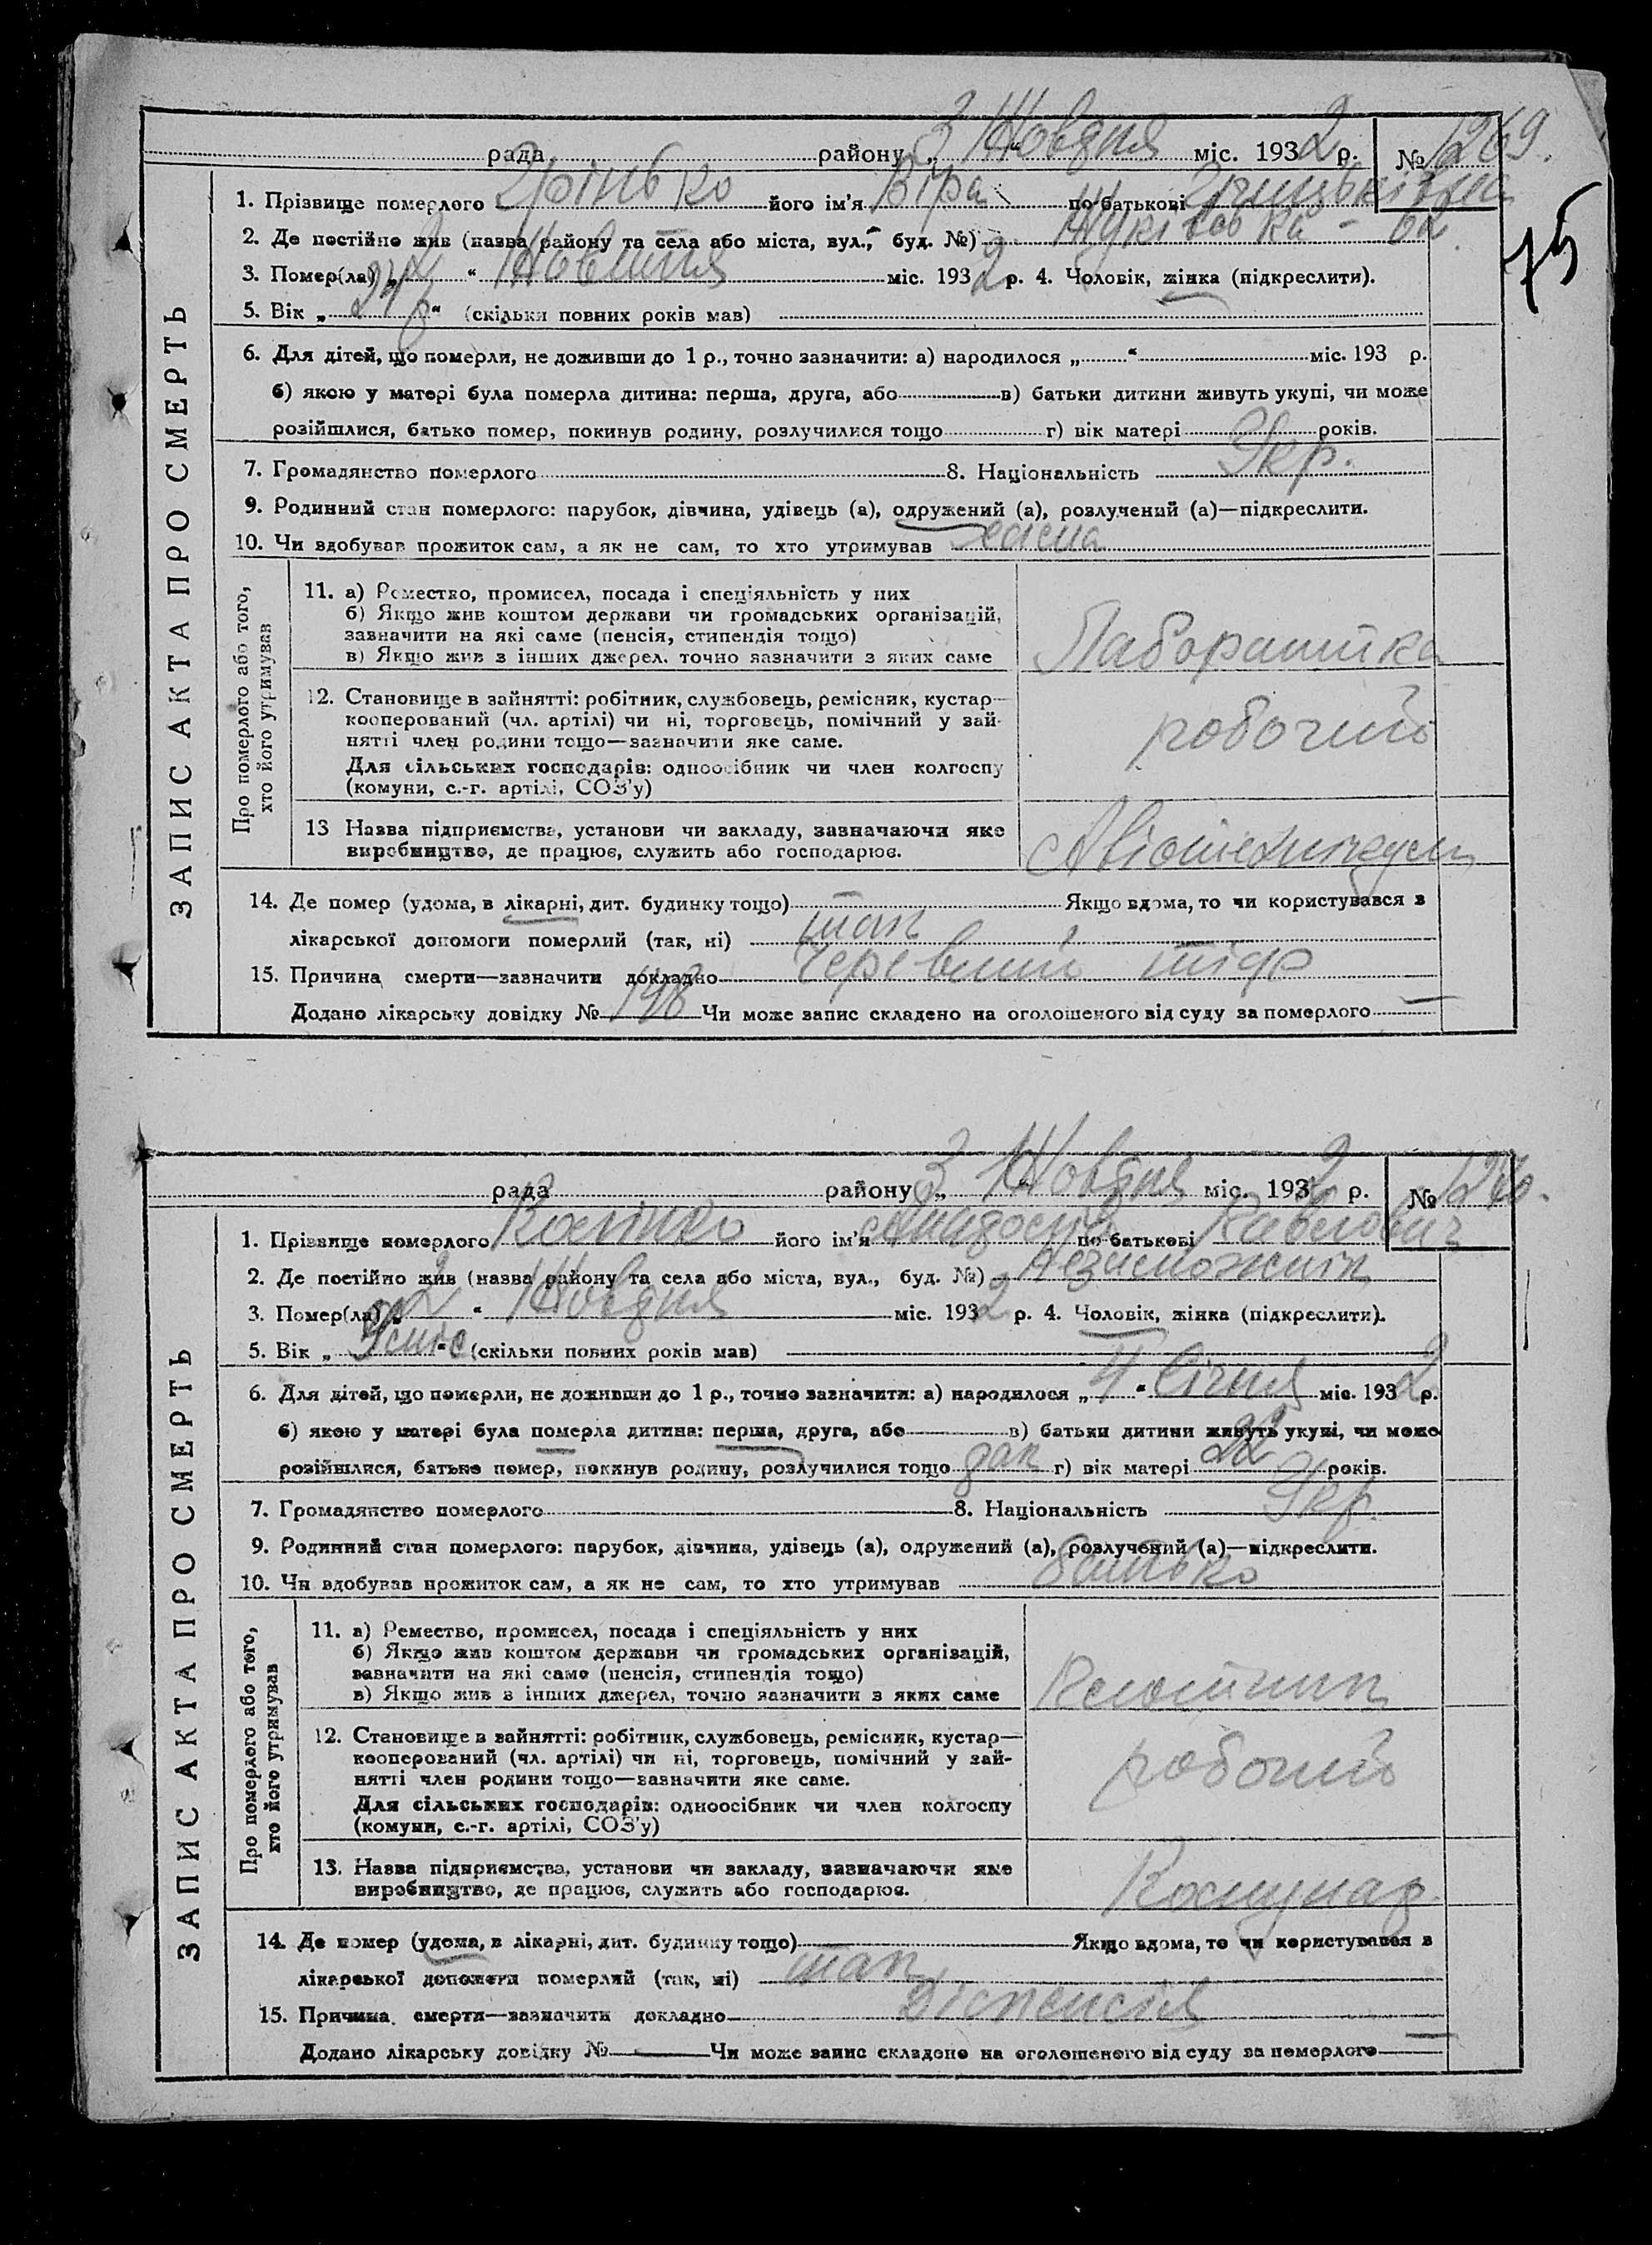 рада району „3“ Жовтня міс. 1932 р. № 1269.
75
ЗАПИС АКТА ПРО СМЕРТЬ
1. Прізвище померлого Грінько його ім'я Віра по-батькові
2. Де постійно жив (назва району та села або міста, вул., буд. №)
3. Помер(ла) „2“ Жовтня міс. 1932 р. 4. Чоловік, жінка (підкреслити).
5. Вік „24 р“ (скільки повних років мав)
6. Для дітей, що померли, не доживши до 1 р., точно зазначити: а) народилося „ “ міс. 193 р.
б) якою у матері була померла дитина: перша, друга, або в) батьки дитини живуть укупі, чи може
розійшлися, батько помер, покинув родину, розлучилися тощо г) вік матері років.
7. Громадянство померлого 8. Національність Укр.
9. Родинний стан померлого: парубок, дівчина, удівець (а), одружений (а), розлучений (а)—підкреслити.
10. Чи вдобував прожиток сам, а як не сам, то хто утримував
Про померлого або того, хто його утримував
11. а) Ремество, промисел, посада і спеціяльність у них
б) Якщо жив коштом держави чи громадських організацій,
зазначити на які саме (пенсія, стипендія тощо)
в) Якщо жив з інших джерел, точно зазначити з яких саме
Лаборантка
12. Становище в зайнятті: робітник, службовець, ремісник, кустар—
кооперований (чл. артілі) чи ні, торговець, помічний у зай-
нятті член родини тощо—зазначити яке саме.
Для сільських господарів: одноосібник чи член колгоспу
(комуни, с.-г. артілі, СОЗ'у)
робочий
13 Назва підприємства, установи чи закладу, зазначаючи яке
виробництво, де працює, служить або господарює.
Авіотехнікум
14. Де помер (удома, в лікарні, дит. будинку тощо) Якщо вдома, то чи користувався з
лікарської допомоги померлий (так, ні) так
15. Причина смерти—зазначити докладно Черевний тіф
Додано лікарську довідку № 148 Чи може запис складено на оголошеного від суду за померлого —
рада району „3“ Жовтня міс. 1932 р. № 1270.
ЗАПИС АКТА ПРО СМЕРТЬ
1. Прізвище померлого його ім'я по-батькові Павлович
2. Де постійно жив (назва району та села або міста, вул., буд. №) Незаможник
3. Помер(ла) „2“ Жовтня міс. 1932 р. 4. Чоловік, жінка (підкреслити).
5. Вік „9 міс“ (скільки повних років мав)
6. Для дітей, що померли, не доживши до 1 р., точно зазначити: а) народилося „4“ Січня міс. 1932 р.
б) якою у матері була померла дитина: перша, друга, або в) батьки дитини живуть укупі, чи може
розійшлися, батько помер, покинув родину, розлучилися тощо г) вік матері 22 років.
7. Громадянство померлого 8. Національність Укр.
9. Родинний стан померлого: парубок, дівчина, удівець (а), одружений (а), розлучений (а)—підкреслити.
10. Чи вдобував прожиток сам, а як не сам, то хто утримував батько
Про померлого або того, хто його утримував
11. а) Ремество, промисел, посада і спеціяльність у них
б) Якщо жив коштом держави чи громадських організацій,
зазначити на які саме (пенсія, стипендія тощо)
в) Якщо жив з інших джерел, точно зазначити з яких саме
12. Становище в зайнятті: робітник, службовець, ремісник, кустар—
кооперований (чл. артілі) чи ні, торговець, помічний у зай-
нятті член родини тощо—зазначити яке саме.
Для сільських господарів: одноосібник чи член колгоспу
(комуни, с.-г. артілі, СОЗ'у)
робочий
13. Назва підприємства, установи чи закладу, зазначаючи яке
виробництво, де працює, служить або господарює.
Комунар
14. Де помер (удома, в лікарні, дит. будинку тощо) Якщо вдома, то чи користувався з
лікарської допомоги померлий (так, ні) так
15. Причина смерти—зазначити докладно Діспенсія
Додано лікарську довідку № — Чи може запис складено на оголошеного від суду за померлого —